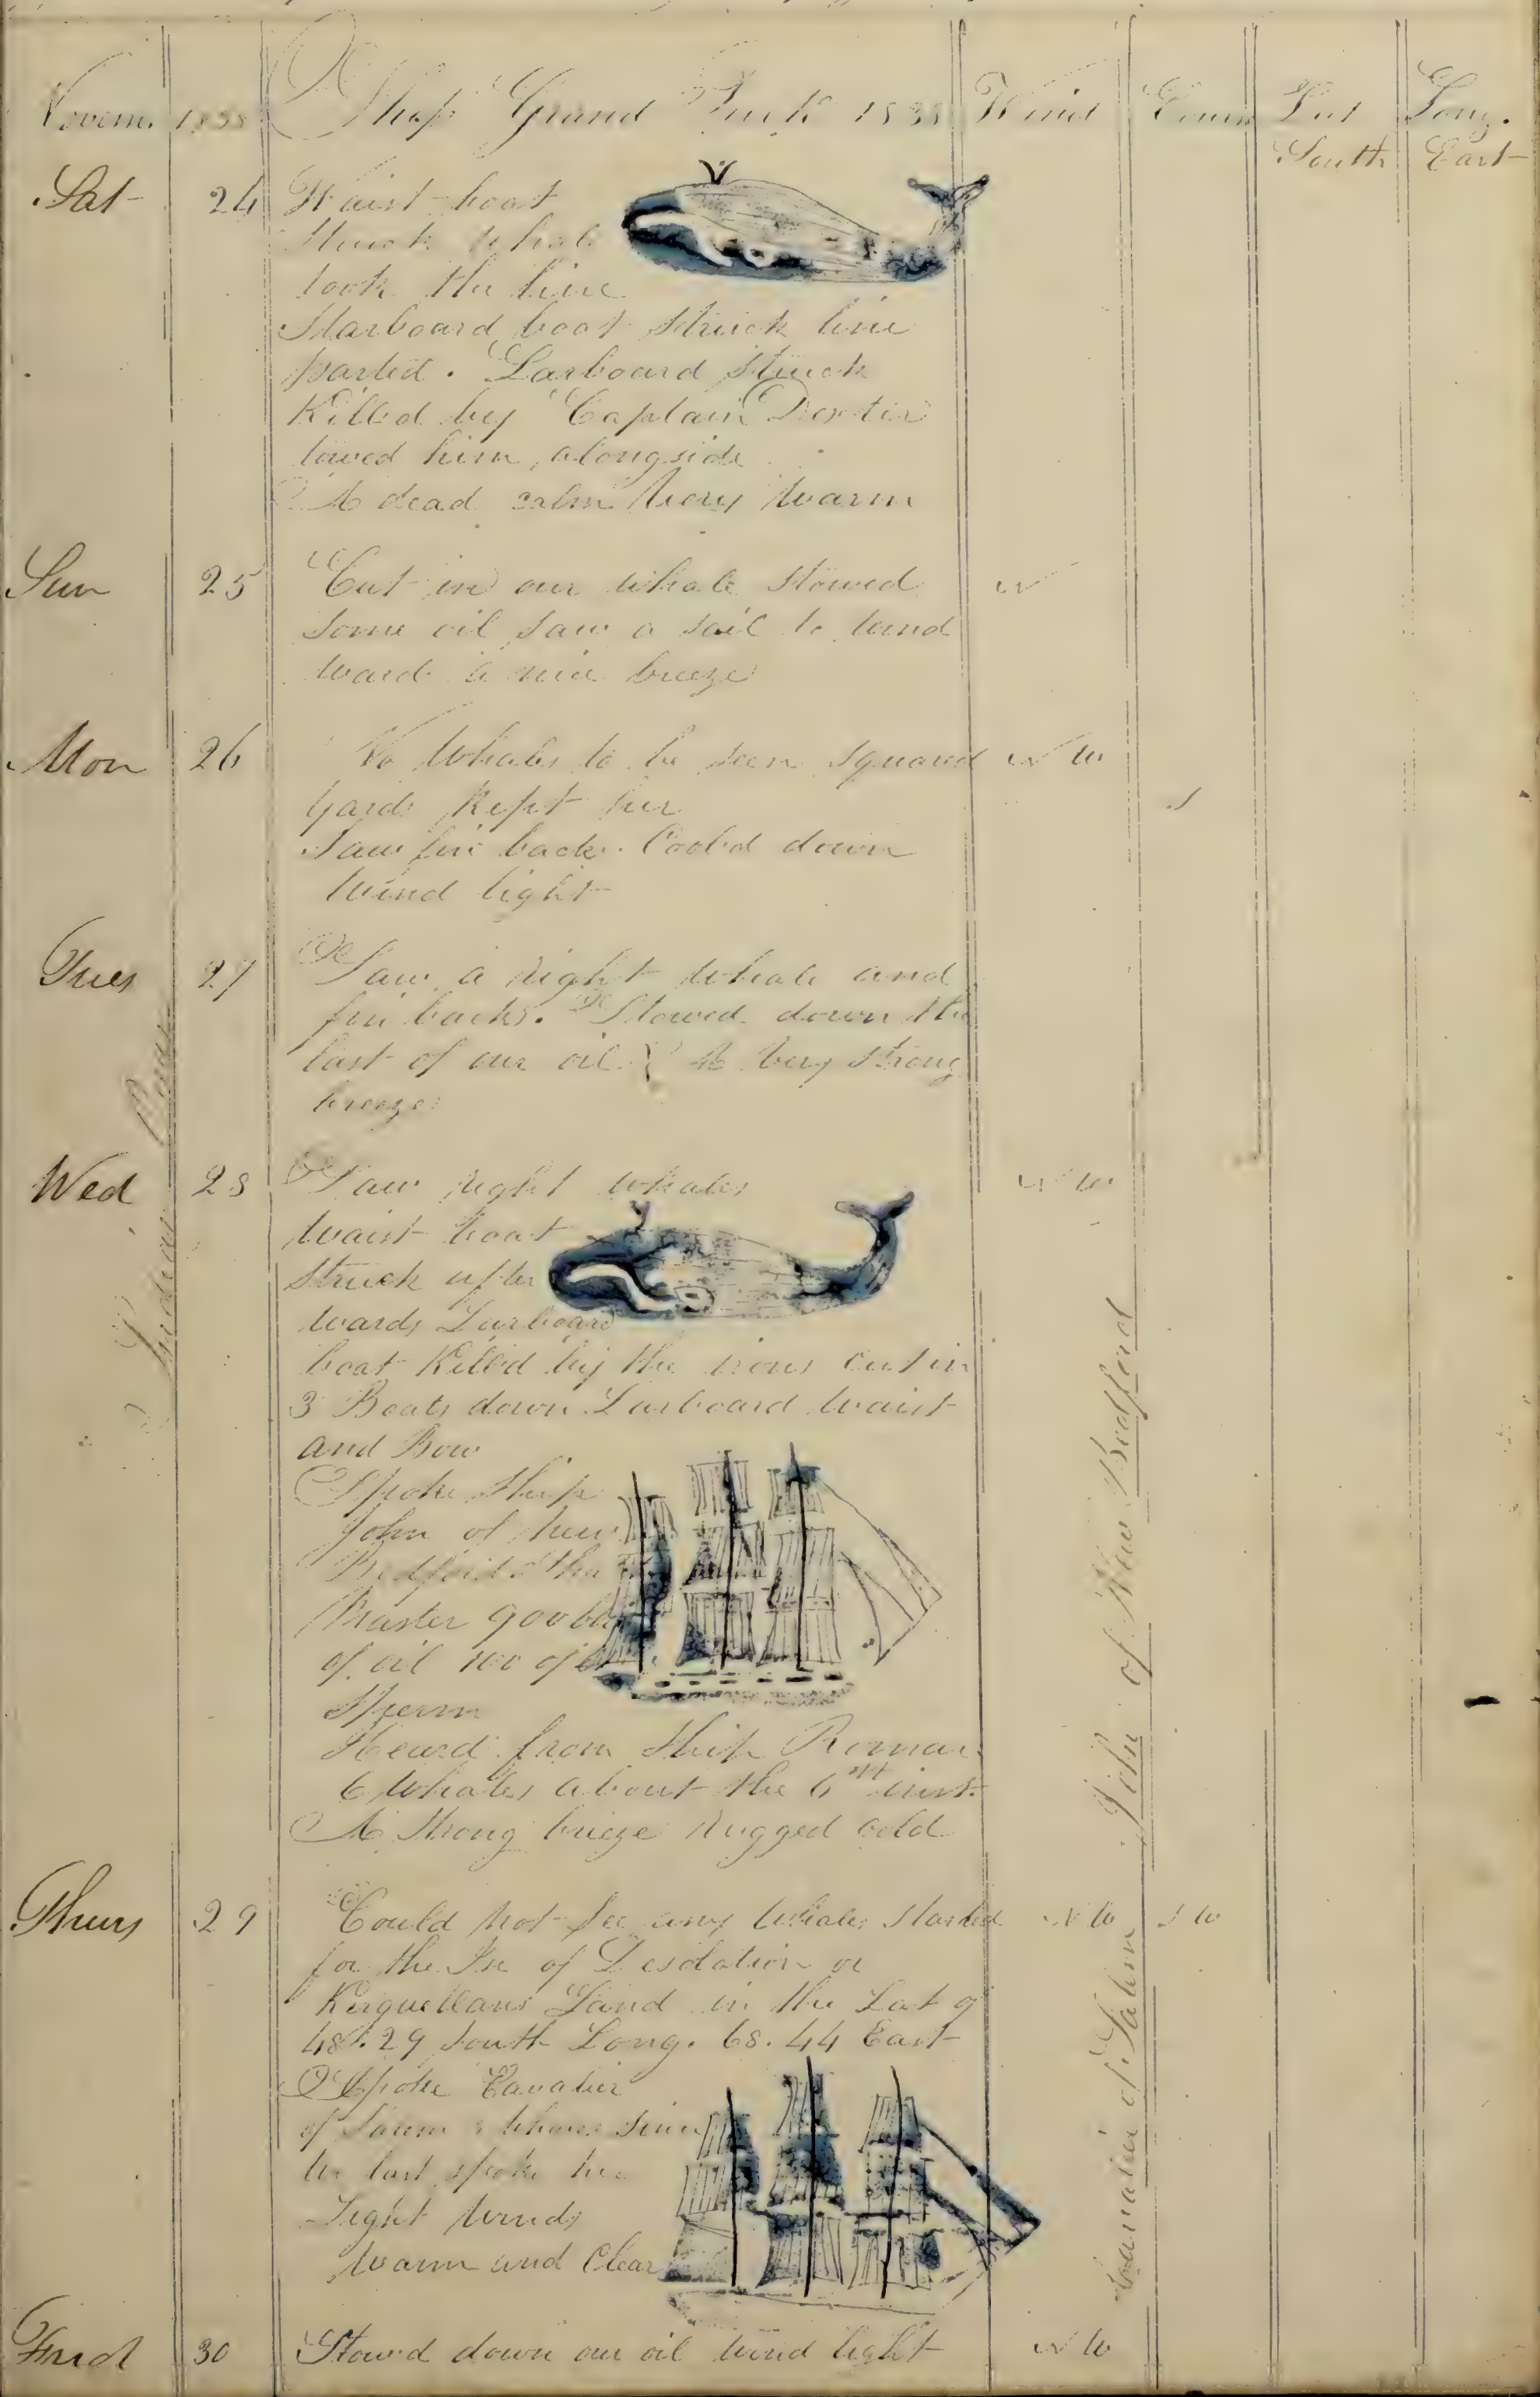 Novem. 1838 Ship Grand Turk 1838 Wind Course Lat South Long. East
Sat 24 Waist boat
Struck whale
took the line
Starboard boat struck line
parted. Larboard struck
Killed by Captain
towed him alongside
A dead calm Very warm
Sun 25 Cut in our whale stowed N
some oil saw a sail to wind
ward a nice breeze
Mon 26 No Whales to be seen squared N W
yards Kept her S
Saw fin backs. Coold down
Wind light
Tues 27 Saw a right whale and
fin backs. Stowed down the
last of our oil. A very strong
breeze
Wed 28 Saw right whales N W
Waist boat
Struck after
wards Larboard
boat Killed by the irons cut in
3 Boats down Larboard Waist
and Bow
Spoke Ship
John of New
Bedford
Master 900 bbls
of oil 100 of it
Sperm
Heard from Ship Roman
6 Whales about the 6th inst.
A Strong breeze Rugged cold
Thurs 29 Could not see any whales started N W S W
for the Is of Desolation or
Kerguellans Land in the Lat of
48.29 South Long. 68.44 East
Spoke Cavalier
of Salem whales since
we last spoke her
Light winds
Warm and Clear
Frid 30 Stow'd down our oil wind light N W
John of New Bedford
Cavalier of Salem